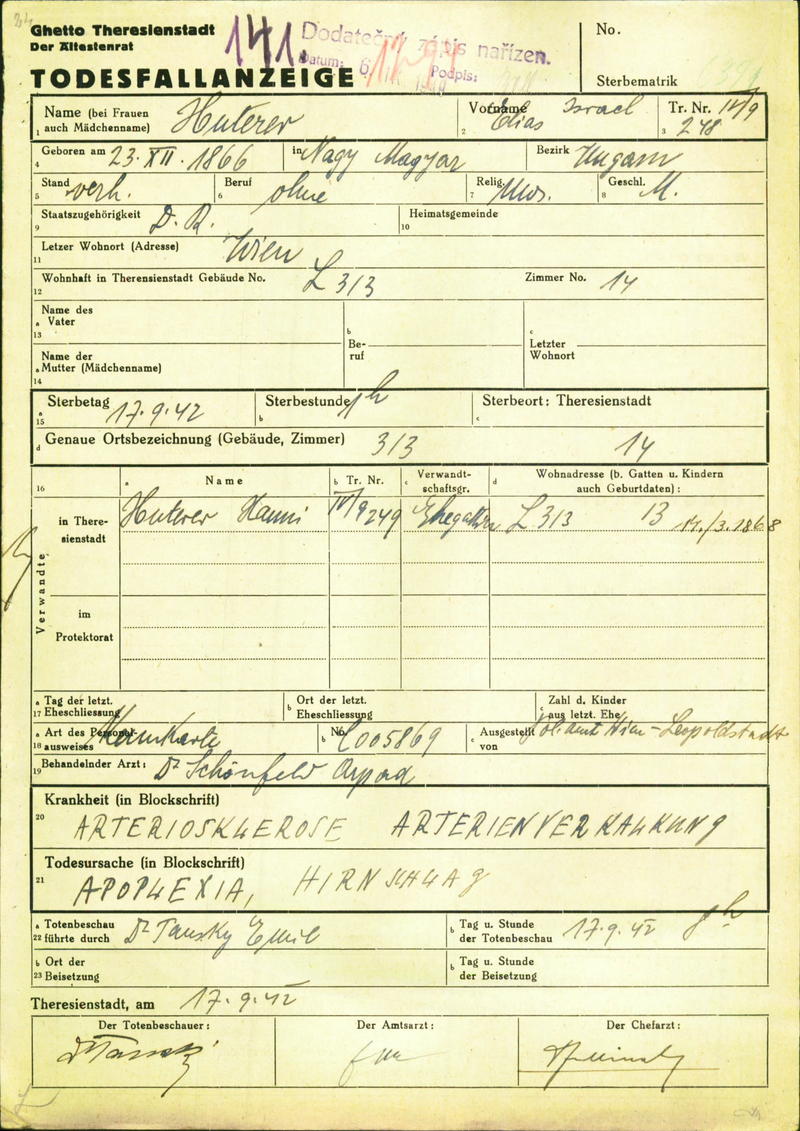 Ghetto Theresienstadt
Der Ältestenrat
TODESFALLANZEIGE
141.
Dodatečný zápis nařízen.
Datum: 6 Podpis:
No.
Sterbematrik
Name (bei Frauen auch Mädchenname) Huterer
1
Vorname Elias Israel
2
Tr. Nr. IV/9
3 248
Geboren am 23. XII. 1866 in Nagy Magyar Bezirk Ungarn
4
Stand verh. Beruf ohne Relig. mos. Geschl. M.
5 6 7 8
Staatszugehörigkeit D. R. Heimatsgemeinde
9 10
Letzer Wohnort (Adresse) Wien
11
Wohnhaft in Therensienstadt Gebäude No. L 313 Zimmer No. 14
12
Name des
a Vater
13
b Beruf
c Letzter Wohnort
Name der
a Mutter (Mädchenname)
14
Sterbetag 17.9.42 Sterbestunde h Sterbeort: Theresienstadt
a 15 b c
d Genaue Ortsbezeichnung (Gebäude, Zimmer) 313 14
16 a Name b Tr. Nr. c Verwandtschaftsgr. d Wohnadresse (b. Gatten u. Kindern auch Geburtdaten):
Verwandte
in Theresienstadt
Huterer Hanni IV/9 249 Ehegattin L 313 13 11./3.1868
im Protektorat
a Tag der letzt. b Ort der letzt. c Zahl d. Kinder
17 Eheschliessung Eheschliessung aus letzt. Ehe
a Art des Personalausweises Kennkarte b No. 005869 c Ausgestellt von Pol. amt Wien-Leopoldstadt
18
Behandelnder Arzt: Dr Schönfeld Arpad
19
Krankheit (in Blockschrift)
20 ARTERIOSKLEROSE ARTERIENVERKALKUNG
Todesursache (in Blockschrift)
21 APOPLEXIA, HIRNSCHLAG
a Totenbeschau
22 führte durch Dr Tansky Emil
b Tag u. Stunde der Totenbeschau 17.9.42 h
b Ort der
23 Beisetzung
b Tag u. Stunde der Beisetzung
Theresienstadt, am 17.9.42
Der Totenbeschauer: Der Amtsarzt: Der Chefarzt: